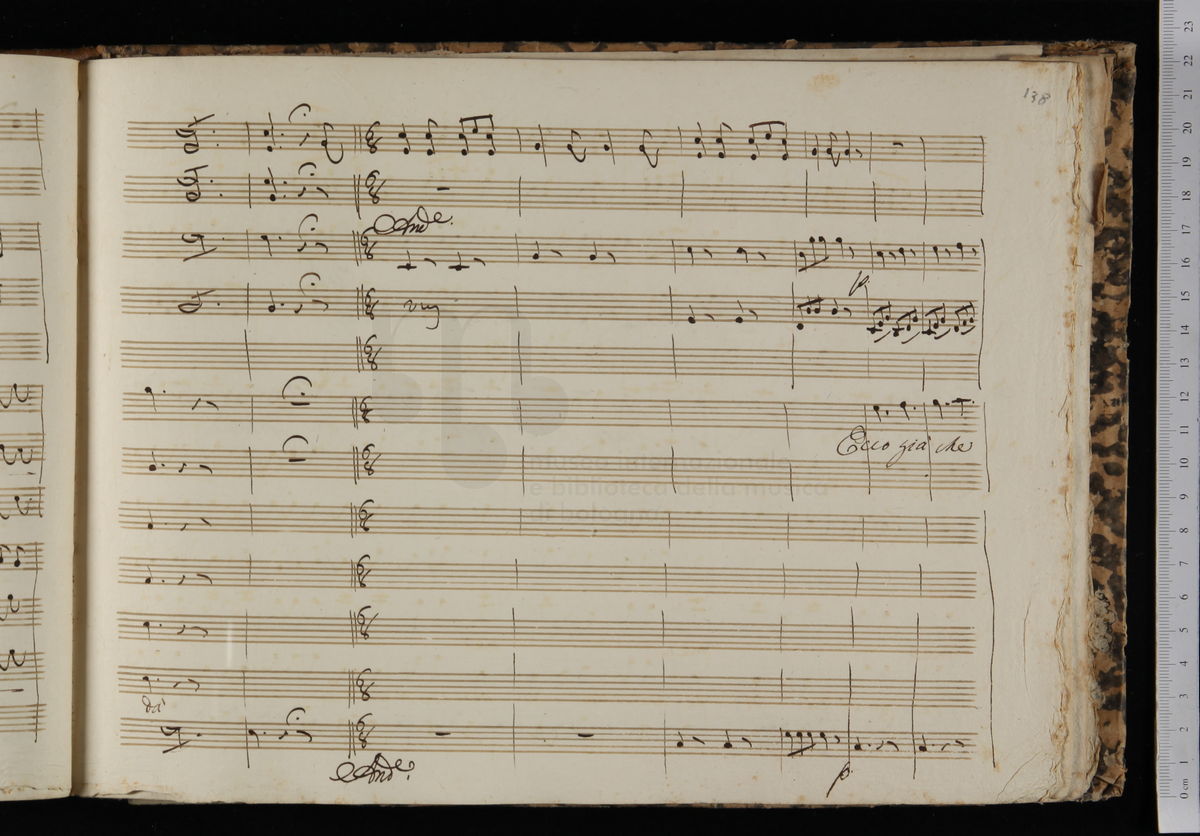 138
And.e
p.
Ecco già che
museo internazionale
e biblioteca della musica
di bologna
da
And.e
p.
23
22
21
20
19
18
17
16
15
14
13
12
11
10
9
8
7
6
5
4
3
2
1
0 cm